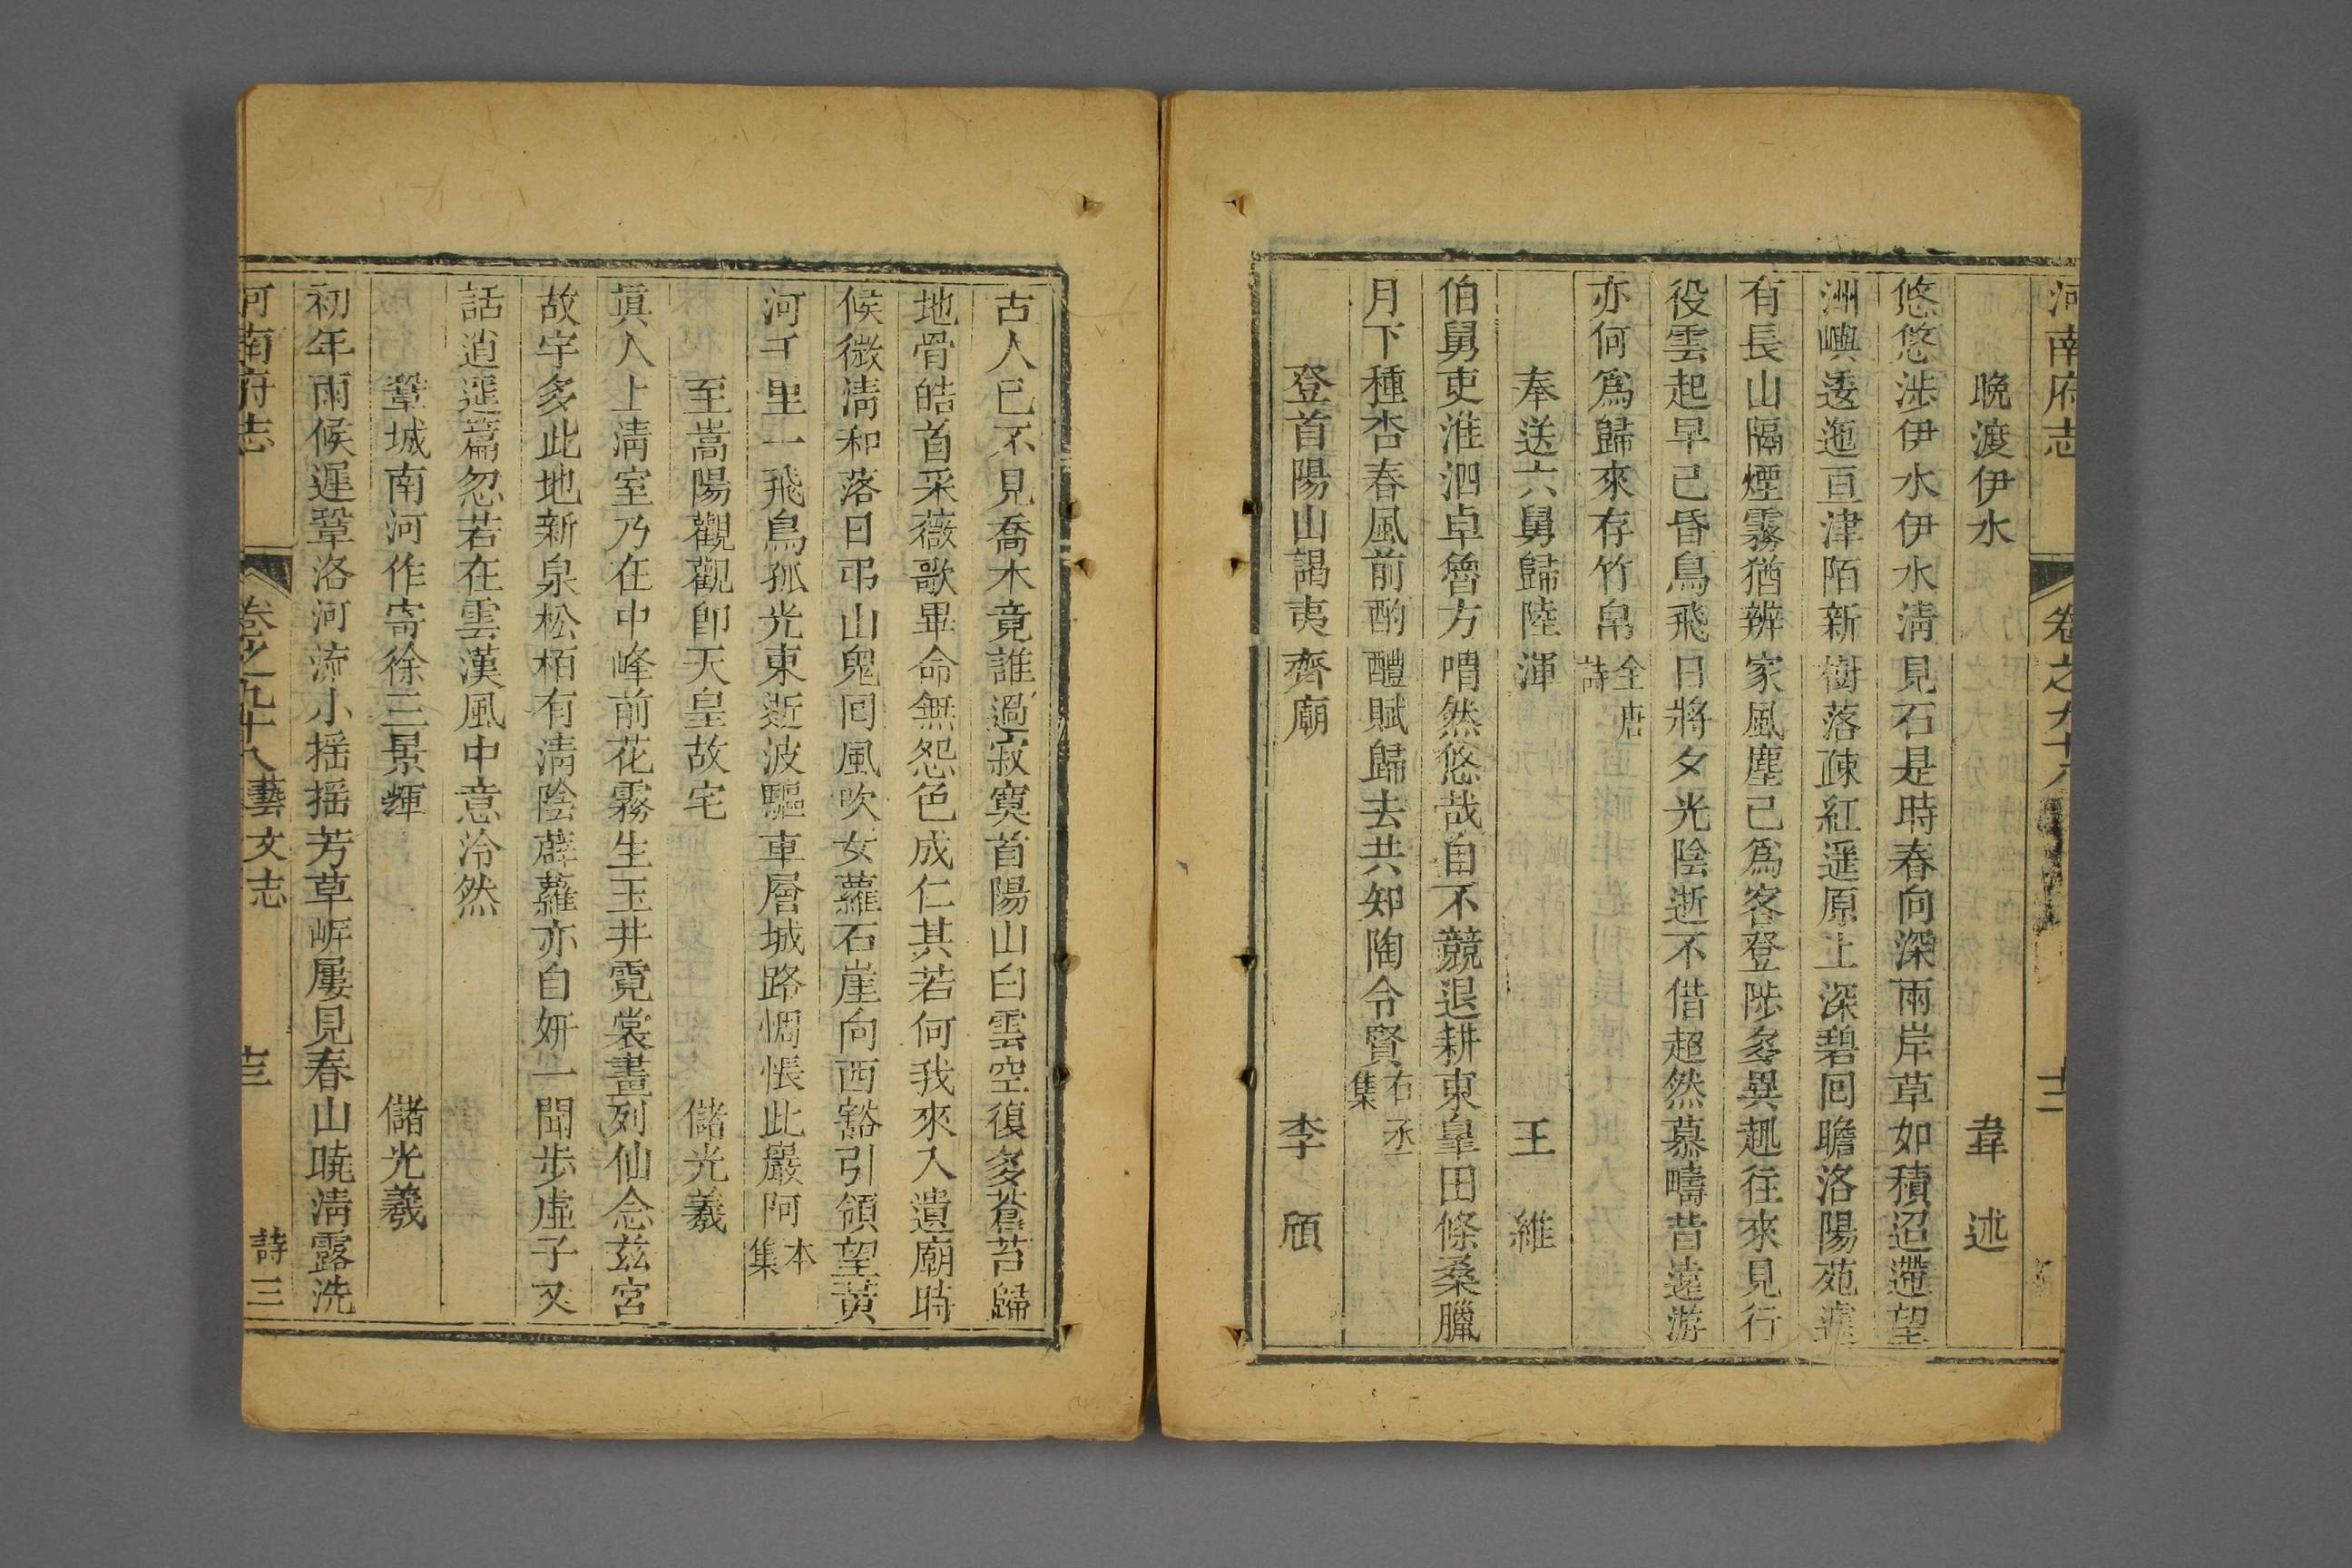 河南府志 卷之九十八 十二
晚渡伊水 韋述
悠悠涉伊水伊水淸見石是時春向深兩岸草如積迢遞望
洲嶼逶迤亘津陌新樹落疎紅遥原上深碧回瞻洛陽苑遽
有長山隔煙霧猶辨家風塵已爲客登陟多異趣往來見行
役雲起早已昏鳥飛日將夕光陰逝不借超然慕疇昔遠游
亦何爲歸來存竹帛全唐詩
奉送六舅歸陸渾 王維
伯舅吏淮泗卓魯方喟然悠哉自不競退耕東皐田條桑臘
月下種杏春風前酌醴賦歸去共知陶令賢右丞集
登首陽山謁夷齊廟 李頎
古人已不見喬木竟誰過寂寞首陽山白雲空復多蒼苔歸
地骨皓首采薇歌畢命無怨色成仁其若何我來入遺廟時
候微淸和落日弔山鬼回風吹女蘿石崖向西豁引領望黃
河千里一飛鳥孤光東逝波驅車層城路惆悵此巖阿本集
至嵩陽觀觀卽天皇故宅 儲光羲
眞人上淸室乃在中峰前花霧生玉井霓裳畫列仙念茲宮
故宇多此地新泉松栢有淸陰薜蘿亦自妍一聞步虛子又
話逍遥篇忽若在雲漢風中意泠然
鞏城南河作寄徐三景輝 儲光羲
初年雨候遲鞏洛河流小搖搖芳草岸屢見春山曉淸露洗
河南府志 卷之九十八藝文志 十三 詩三